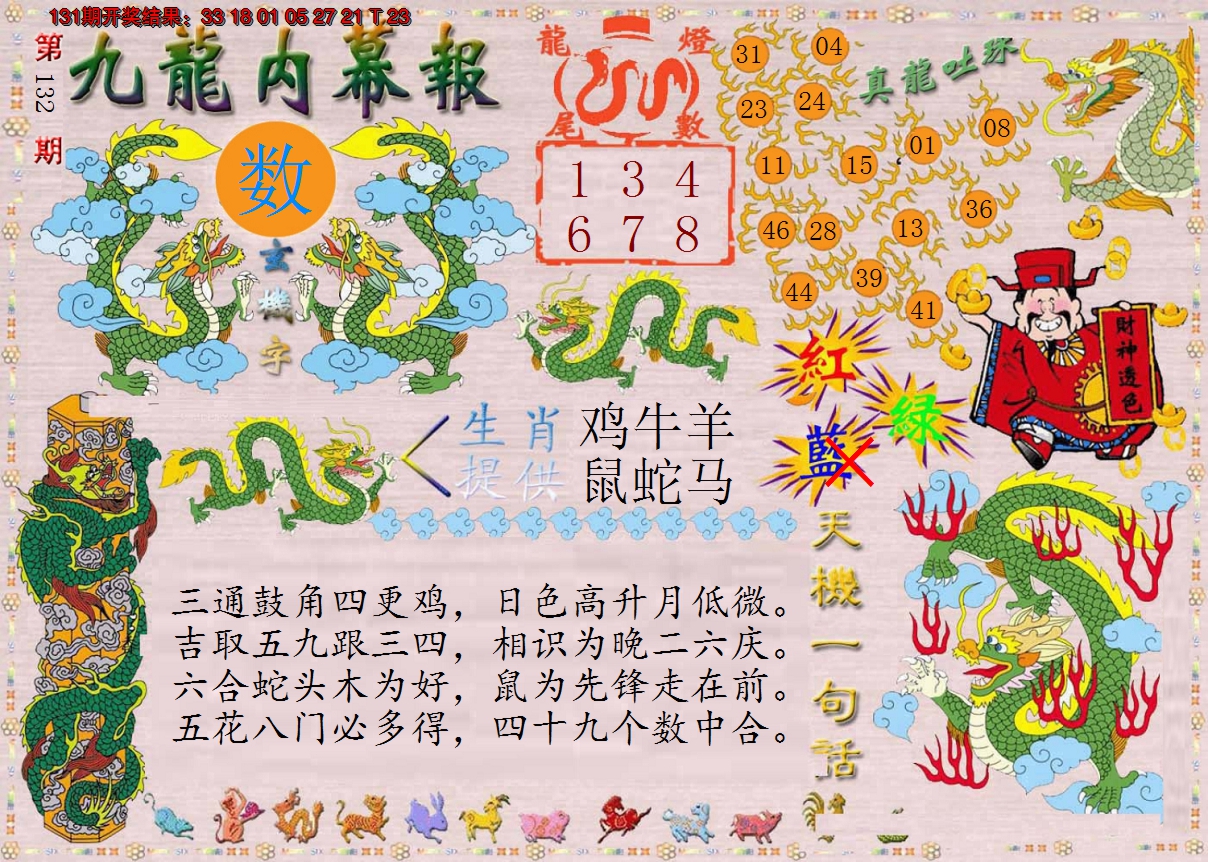 131期开奖结果：33 18 01 05 27 21 T 23
第132期
九龍内幕報
数
玄機字
龍燈
尾數
1 3 4
6 7 8
真龍吐珠
31 04
23 24
11 15 01 08
46 28 13 36
44 39 41
財神透色
紅
绿
藍
生肖 鸡牛羊
提供 鼠蛇马
三通鼓角四更鸡，日色高升月低微。
吉取五九跟三四，相识为晚二六庆。
六合蛇头木为好，鼠为先锋走在前。
五花八门必多得，四十九个数中合。
天機一句话